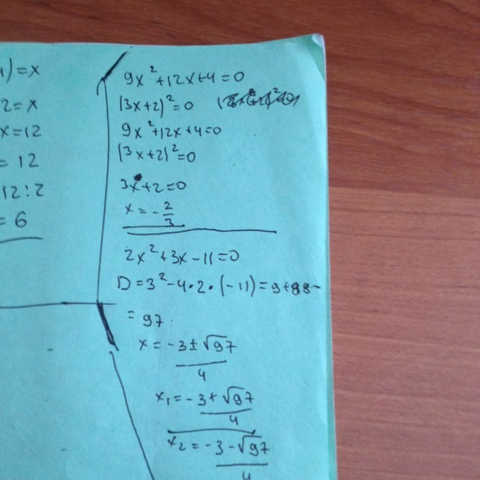 1)=x
2=x
x=12
=12
12:2
=6
9x²+12x+4=0
(3x+2)²=0
9x²+12x+4=0
(3x+2)²=0
3x+2=0
x=-2/3
2x²+3x-11=0
D=3²-4·2·(-11)=9+88-
=97
x=-3±√97/4
x₁=-3+√97/4
x₂=-3-√97/4